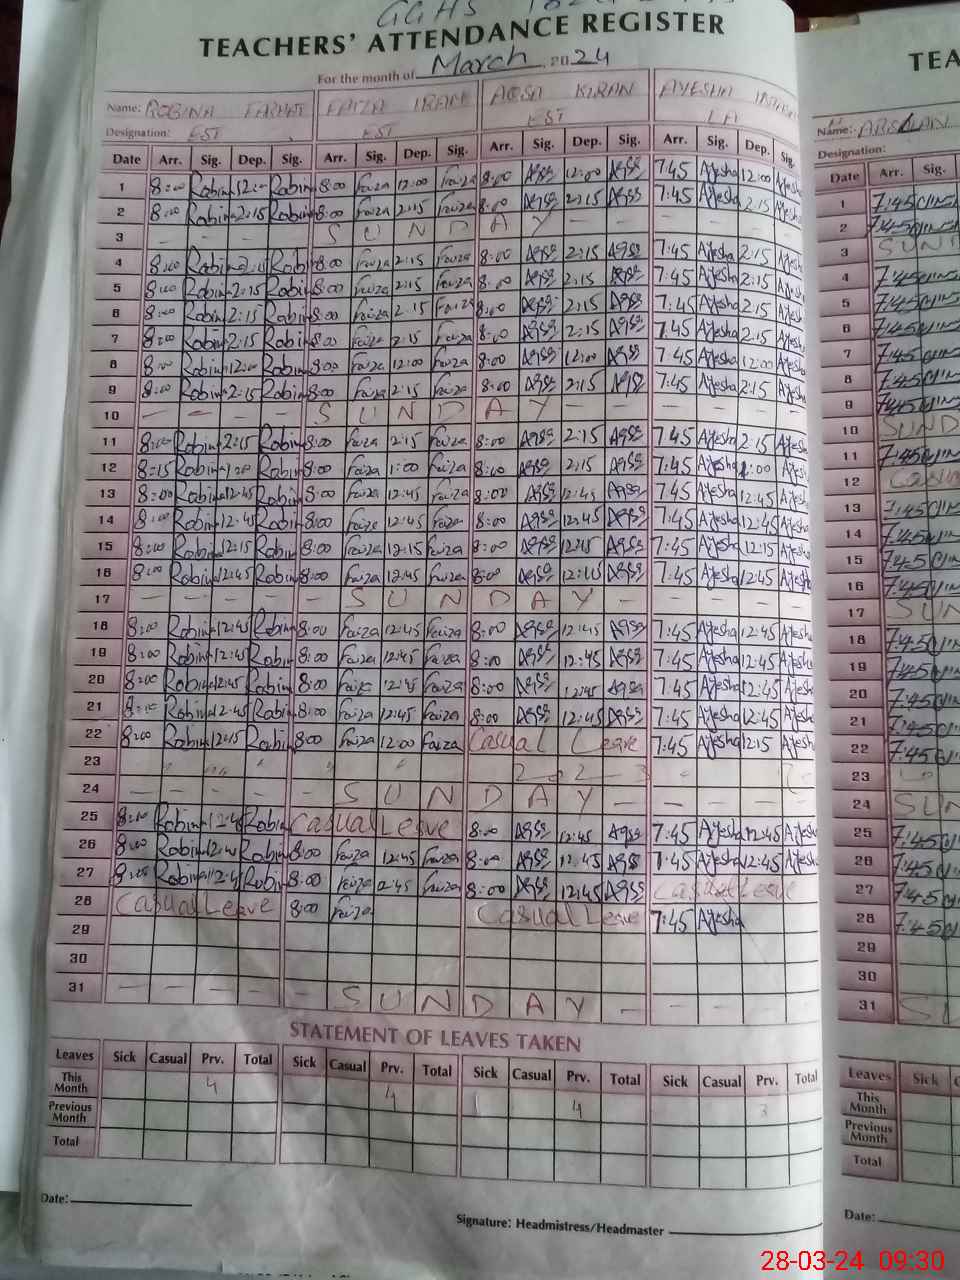 GGHS
TEACHERS' ATTENDANCE REGISTER
For the month of March 2024
Name: ROBINA FARHAT FAIZA IRAM AQSA KIRAN AYESHA
Designation: EST EST EST
Date Arr. Sig. Dep. Sig. Arr. Sig. Dep. Sig. Arr. Sig. Dep. Sig. Arr. Sig. Dep. Sig.
1 8:00 Robina 12:00 Robina 8:00 Faiza 12:00 Faiza 8:00 Aqsa 12:00 Aqsa 7:45 Ayesha 12:00 Ayesha
2 8:00 Robina 2:15 Robina 8:00 Faiza 2:15 Faiza 8:00 Aqsa 2:15 Aqsa 7:45 Ayesha 2:15 Ayesha
3 - - - - S U N D A Y - - - - -
4 8:00 Robina 2:15 Robina 8:00 Faiza 2:15 Faiza 8:00 Aqsa 2:15 Aqsa 7:45 Ayesha 2:15 Ayesha
5 8:00 Robina 2:15 Robina 8:00 Faiza 2:15 Faiza 8:00 Aqsa 2:15 Aqsa 7:45 Ayesha 2:15 Ayesha
6 8:00 Robina 2:15 Robina 8:00 Faiza 2:15 Faiza 8:00 Aqsa 2:15 Aqsa 7:45 Ayesha 2:15 Ayesha
7 8:00 Robina 2:15 Robina 8:00 Faiza 2:15 Faiza 8:00 Aqsa 2:15 Aqsa 7:45 Ayesha 2:15 Ayesha
8 8:00 Robina 12:00 Robina 8:00 Faiza 12:00 Faiza 8:00 Aqsa 12:00 Aqsa 7:45 Ayesha 12:00 Ayesha
9 8:00 Robina 2:15 Robina 8:00 Faiza 2:15 Faiza 8:00 Aqsa 2:15 Aqsa 7:45 Ayesha 2:15 Ayesha
10 - - - - S U N D A Y - - - - - -
11 8:00 Robina 2:15 Robina 8:00 Faiza 2:15 Faiza 8:00 Aqsa 2:15 Aqsa 7:45 Ayesha 2:15 Ayesha
12 8:15 Robina 1:00 Robina 8:00 Faiza 1:00 Faiza 8:00 Aqsa 2:15 Aqsa 7:45 Ayesha 1:00 Ayesha
13 8:00 Robina 12:45 Robina 8:00 Faiza 12:45 Faiza 8:00 Aqsa 12:45 Aqsa 7:45 Ayesha 12:45 Ayesha
14 8:00 Robina 12:45 Robina 8:00 Faiza 12:45 Faiza 8:00 Aqsa 12:45 Aqsa 7:45 Ayesha 12:45 Ayesha
15 8:00 Robina 12:15 Robina 8:00 Faiza 12:15 Faiza 8:00 Aqsa 12:15 Aqsa 7:45 Ayesha 12:15 Ayesha
16 8:00 Robina 12:45 Robina 8:00 Faiza 12:45 Faiza 8:00 Aqsa Aqsa 7:45 Ayesha 12:45 Ayesha
17 - - - - - S U N D A Y - - - - -
18 8:00 Robina 12:45 Robina 8:00 Faiza 12:45 Faiza 8:00 Aqsa 12:45 Aqsa 7:45 Ayesha 12:45 Ayesha
19 8:00 Robina 12:45 Robina 8:00 Faiza 12:45 Faiza 8:00 Aqsa 12:45 Aqsa 7:45 Ayesha 12:45 Ayesha
20 8:00 Robina 12:45 Robina 8:00 Faiza 12:45 Faiza 8:00 Aqsa 12:45 Aqsa 7:45 Ayesha 12:45 Ayesha
21 8:00 Robina 12:45 Robina 8:00 Faiza 12:45 Faiza 8:00 Aqsa 12:45 Aqsa 7:45 Ayesha 12:45 Ayesha
22 8:00 Robina 12:15 Robina 8:00 Faiza 12:00 Faiza Casual Leave 7:45 Ayesha 12:15 Ayesha
23
24 - - - - - S U N D A Y - - - - -
25 8:00 Robina 12:45 Robina Casual Leave 8:00 Aqsa 12:45 Aqsa 7:45 Ayesha 12:45 Ayesha
26 8:00 Robina 12:45 Robina 8:00 Faiza 12:45 Faiza 8:00 Aqsa 12:45 Aqsa 7:45 Ayesha 12:45 Ayesha
27 8:00 Robina 12:45 Robina 8:00 Faiza 12:45 Faiza 8:00 Aqsa 12:45 Aqsa Casual Leave
28 Casual Leave 8:00 Faiza Casual Leave 7:45 Ayesha
29
30
31 - - - - - S U N D A Y - - - - -
STATEMENT OF LEAVES TAKEN
Leaves Sick Casual Prv. Total Sick Casual Prv. Total Sick Casual Prv. Total Sick Casual Prv. Total
This Month 4 4 4 3
Previous Month
Total
Date:
Signature: Headmistress/Headmaster
TEA
Name: ARSLAN
Designation:
Date Arr. Sig.
1 7:45
2 7:45
3 SUND
4 7:45
5 7:45
6 7:45
7 7:45
8 7:45
9 7:45
10 SUND
11 7:45
12 Casual
13 7:45
14 7:45
15 7:45
16 7:45
17 SUN
18 7:45
19 7:45
20 7:45
21 7:45
22 7:45
23
24 SUN
25 7:45
26 7:45
27 7:45
28 7:45
29
30
31 SU
Leaves Sick C
This Month
Previous Month
Total
Date:
28-03-24 09:30